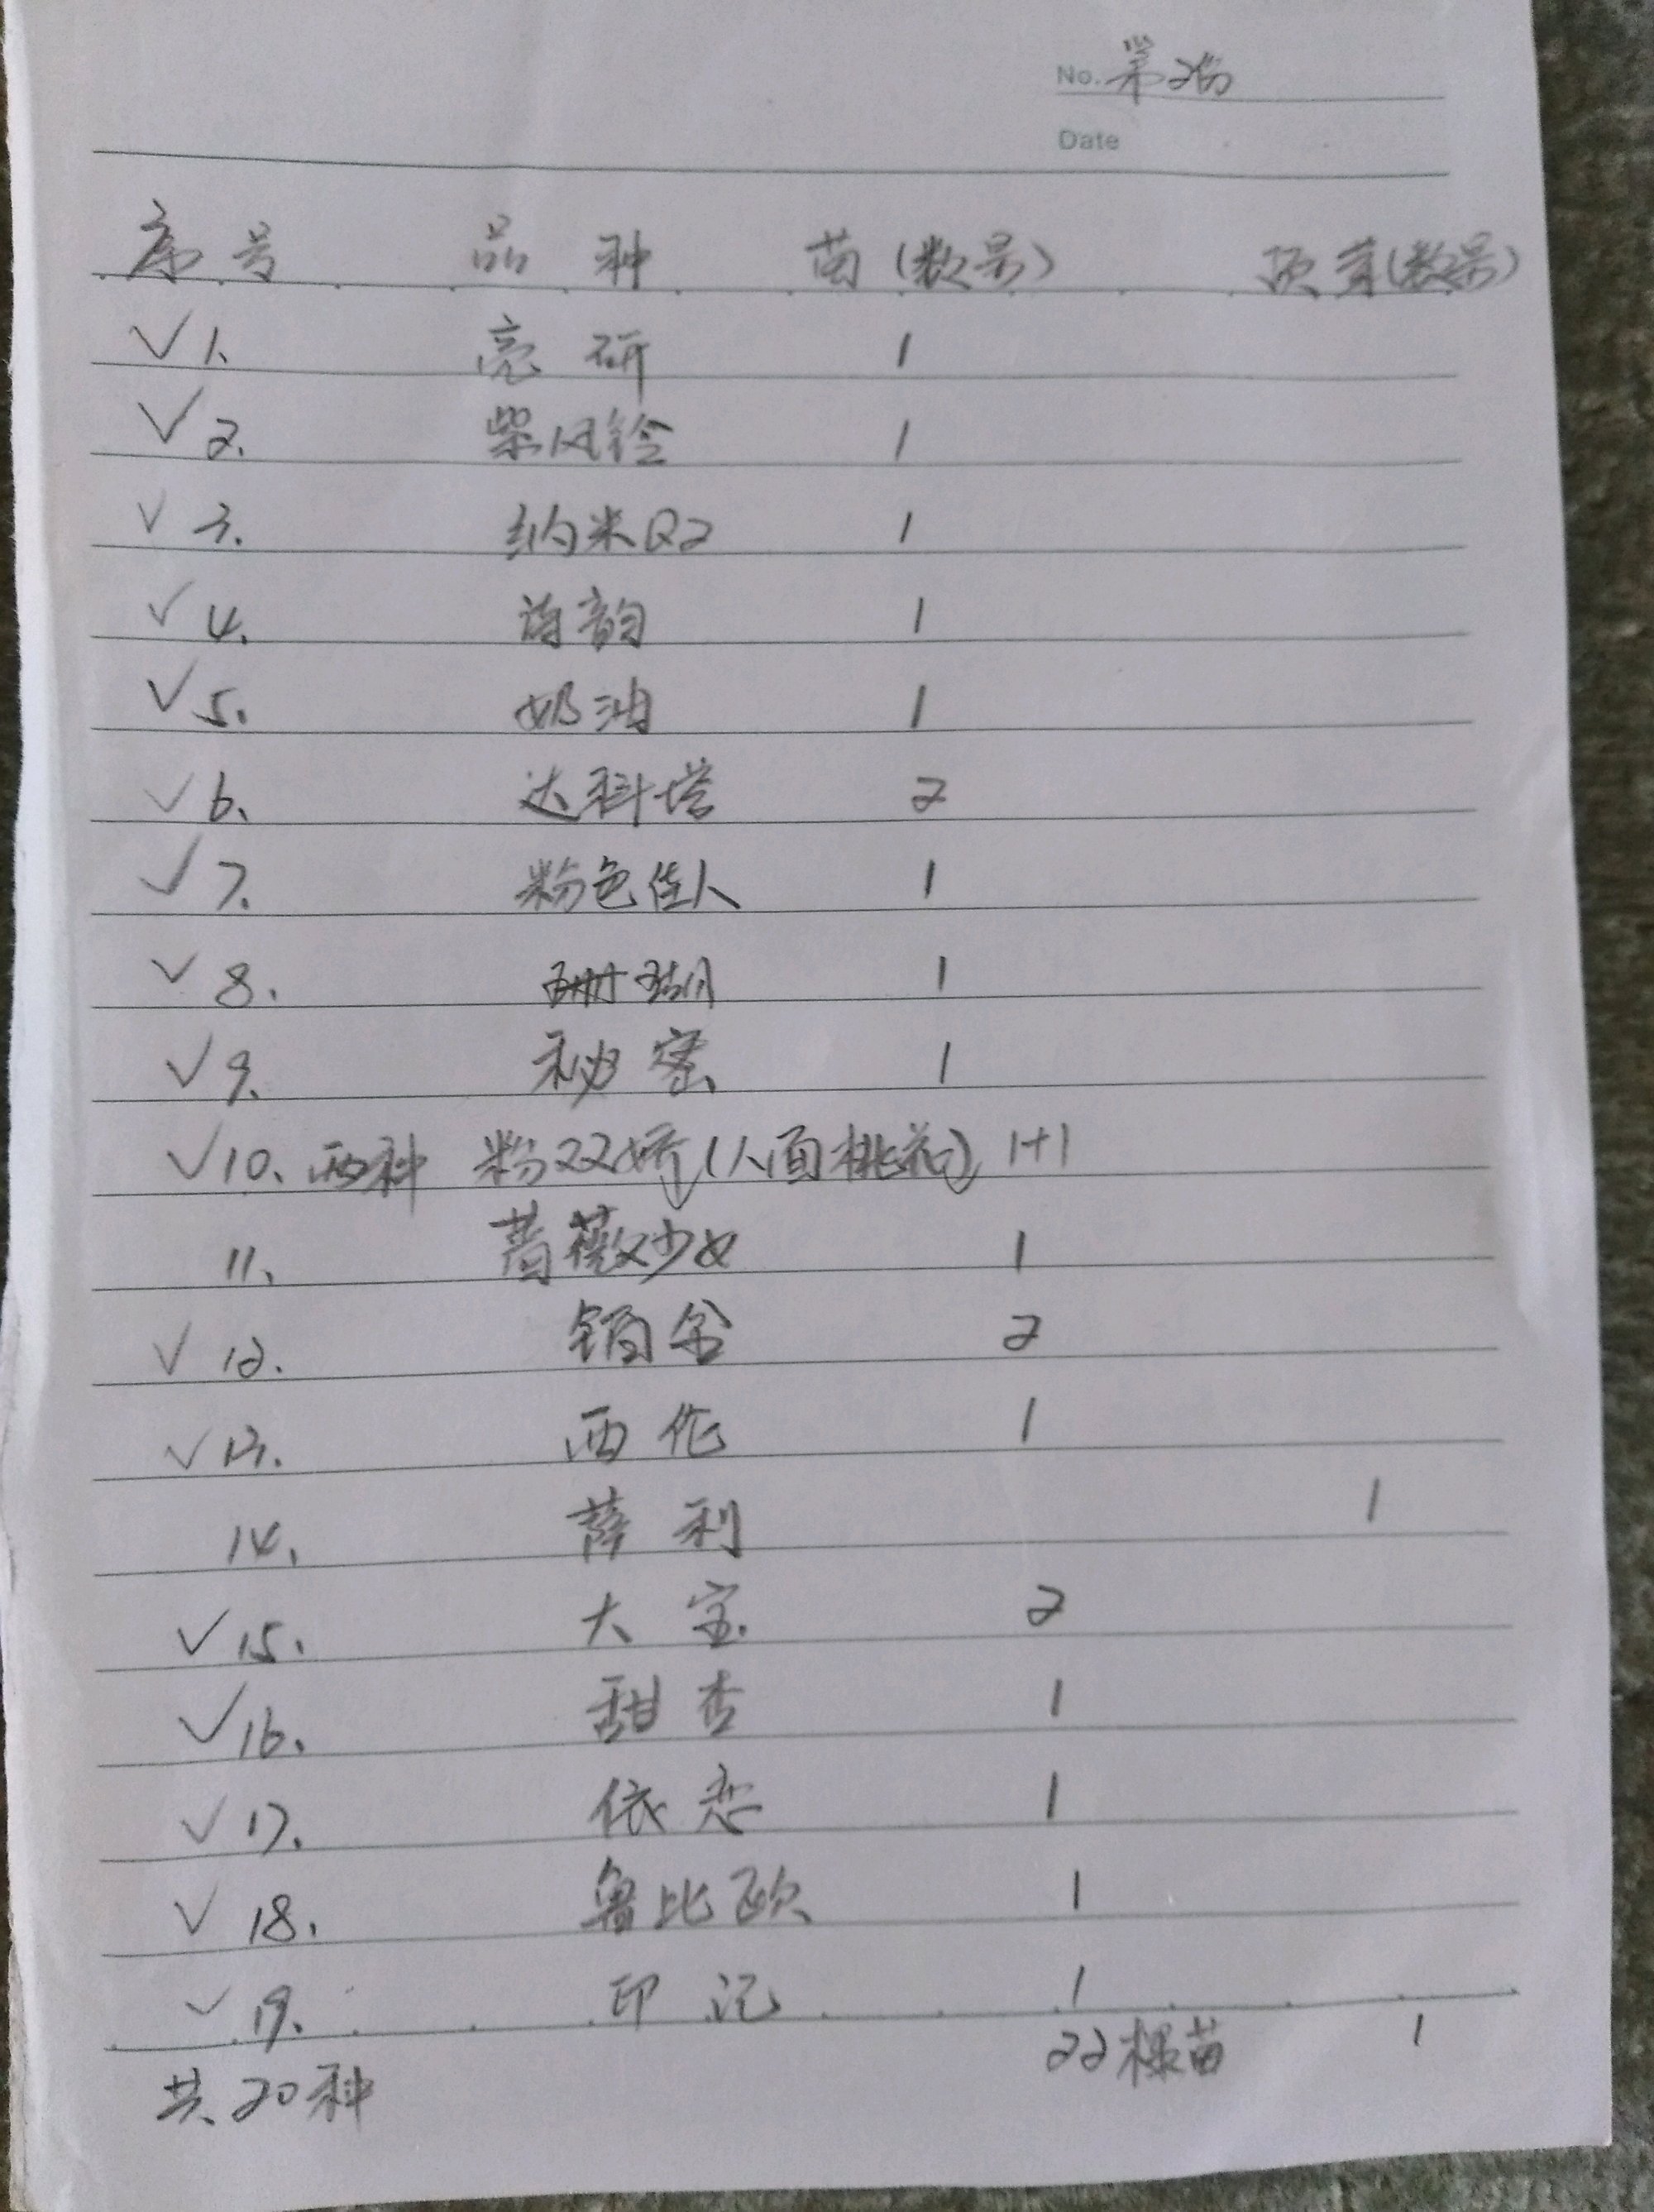 No. 第2份
Date
序号 品种 苗(数量) 顶芽(数量)
✓1. 亮研 1
✓2. 紫风铃 1
✓3. 纳米Q2 1
✓4. 诗韵 1
✓5. 奶油 1
✓6. 达科塔 2
✓7. 粉色佳人 1
✓8. 珊瑚 1
✓9. 秘密 1
✓10. 两种 粉双娇(人面桃花) 1+1
11. 蔷薇少女 1
✓12. 销金 2
✓13. 西伦 1
14. 萨利 1
✓15. 大宝 2
✓16. 甜杏 1
✓17. 依恋 1
✓18. 鲁比欧 1
✓19. 印记 1
22棵苗 1
共20种